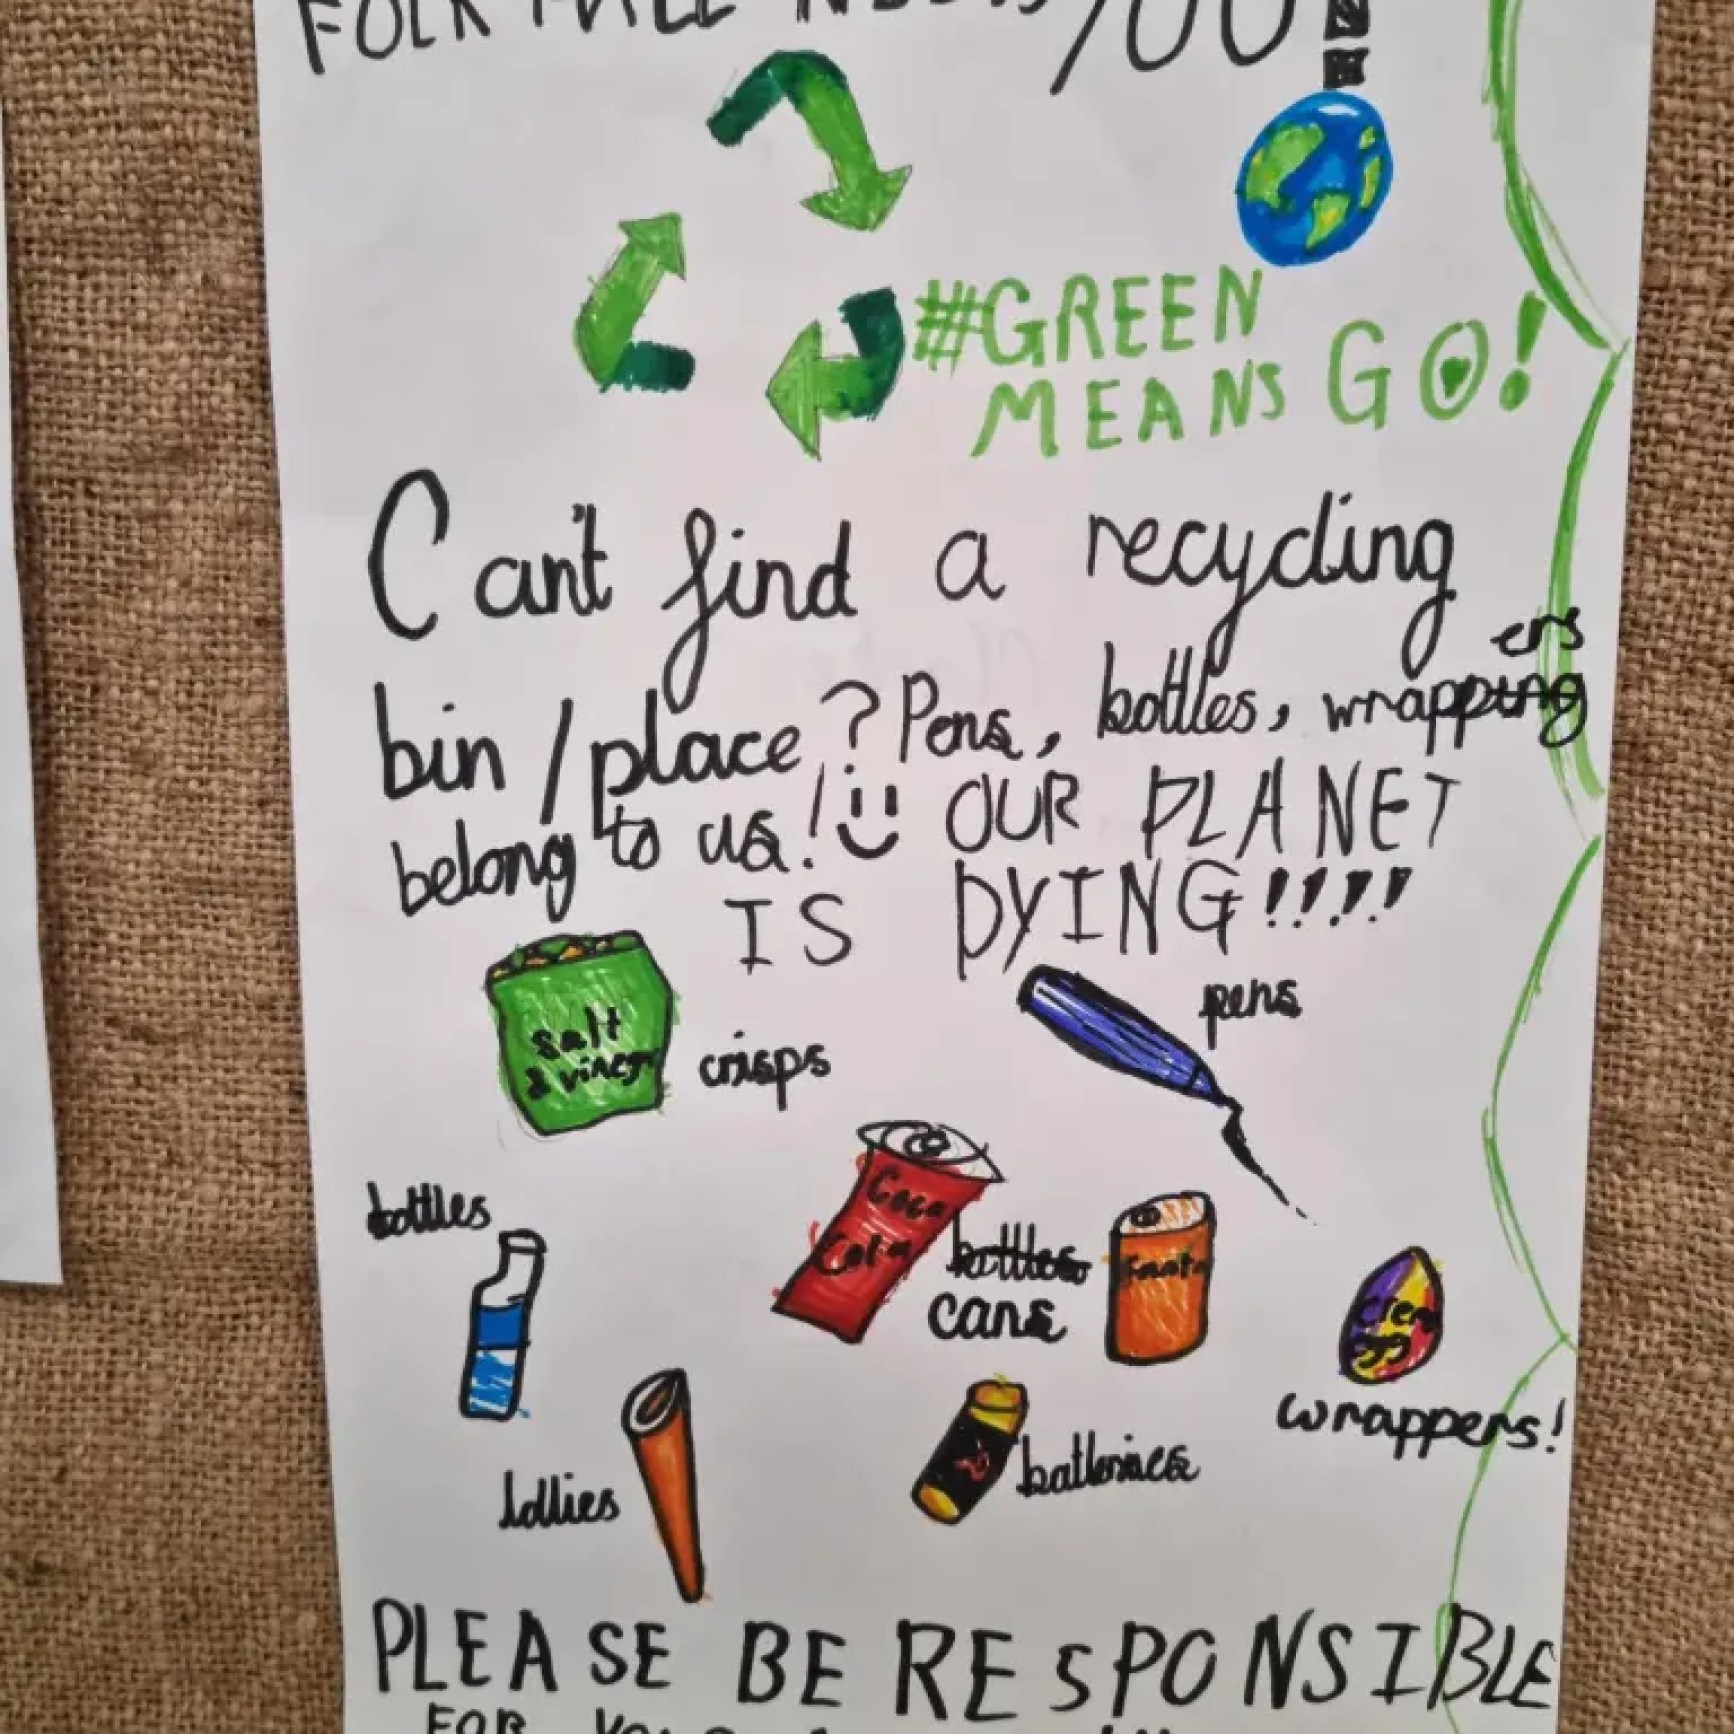 FOLK NEEDS YOU!
#GREEN
MEANS GO!
Can't find a recycling
bin/place? Pens, bottles, wrappers
belong to us! OUR PLANET
IS DYING!!!!
pens
salt
& vinegr
crisps
bottles
Coca
Cola
bottles
cans
Fanta
Creme
egg
wrappers!
lollies
batteries
PLEASE BE RESPONSIBLE
FOR YOUR